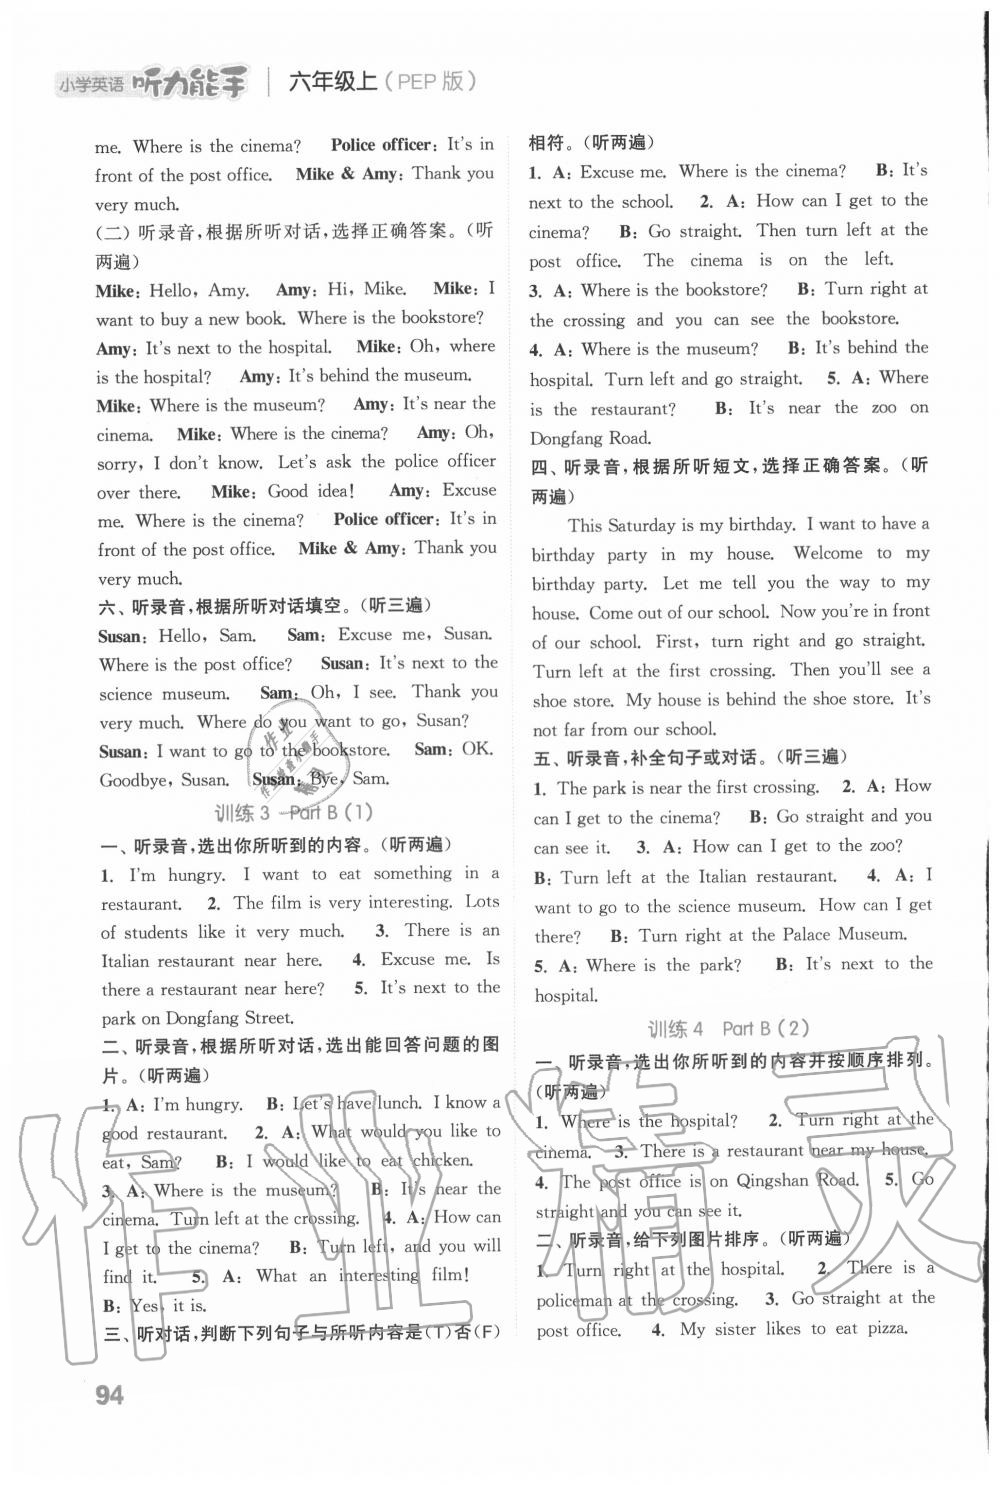 小学英语 听力能手 六年级上(PEP 版)
me. Where is the cinema? Police officer: It's in
front of the post office. Mike & Amy: Thank you
very much.
(二)听录音,根据所听对话,选择正确答案。(听
两遍)
Mike: Hello, Amy. Amy: Hi, Mike. Mike: I
want to buy a new book. Where is the bookstore?
Amy: It's next to the hospital. Mike: Oh, where
is the hospital? Amy: It's behind the museum.
Mike: Where is the museum? Amy: It's near the
cinema. Mike: Where is the cinema? Amy: Oh,
sorry, I don't know. Let's ask the police officer
over there. Mike: Good idea! Amy: Excuse
me. Where is the cinema? Police officer: It's in
front of the post office. Mike & Amy: Thank you
very much.
六、听录音,根据所听对话填空。(听三遍)
Susan: Hello, Sam. Sam: Excuse me, Susan.
Where is the post office? Susan: It's next to the
science museum. Sam: Oh, I see. Thank you
very much. Where do you want to go, Susan?
Susan: I want to go to the bookstore. Sam: OK.
Goodbye, Susan. Susan: Bye, Sam.
训练 3 Part B(1)
一、听录音,选出你所听到的内容。(听两遍)
1. I'm hungry. I want to eat something in a
restaurant. 2. The film is very interesting. Lots
of students like it very much. 3. There is an
Italian restaurant near here. 4. Excuse me. Is
there a restaurant near here? 5. It's next to the
park on Dongfang Street.
二、听录音,根据所听对话,选出能回答问题的图
片。(听两遍)
1. A: I'm hungry. B: Let's have lunch. I know a
good restaurant. 2. A: What would you like to
eat, Sam? B: I would like to eat chicken.
3. A: Where is the museum? B: It's near the
cinema. Turn left at the crossing. 4. A: How can
I get to the cinema? B: Turn left, and you will
find it. 5. A: What an interesting film!
B: Yes, it is.
三、听对话,判断下列句子与所听内容是(T)否(F)
相符。(听两遍)
1. A: Excuse me. Where is the cinema? B: It's
next to the school. 2. A: How can I get to the
cinema? B: Go straight. Then turn left at the
post office. The cinema is on the left.
3. A: Where is the bookstore? B: Turn right at
the crossing and you can see the bookstore.
4. A: Where is the museum? B: It's behind the
hospital. Turn left and go straight. 5. A: Where
is the restaurant? B: It's near the zoo on
Dongfang Road.
四、听录音,根据所听短文,选择正确答案。(听
两遍)
This Saturday is my birthday. I want to have a
birthday party in my house. Welcome to my
birthday party. Let me tell you the way to my
house. Come out of our school. Now you're in front
of our school. First, turn right and go straight.
Turn left at the first crossing. Then you'll see a
shoe store. My house is behind the shoe store. It's
not far from our school.
五、听录音,补全句子或对话。(听三遍)
1. The park is near the first crossing. 2. A: How
can I get to the cinema? B: Go straight and you
can see it. 3. A: How can I get to the zoo?
B: Turn left at the Italian restaurant. 4. A: I
want to go to the science museum. How can I get
there? B: Turn right at the Palace Museum.
5. A: Where is the park? B: It's next to the
hospital.
训练 4 Part B(2)
一、听录音,选出你所听到的内容并按顺序排列。
(听两遍)
1. Where is the hospital? 2. Turn right at the
cinema. 3. There is a restaurant near my house.
4. The post office is on Qingshan Road. 5. Go
straight and you can see it.
二、听录音,给下列图片排序。(听两遍)
1. Turn right at the hospital. 2. There is a
policeman at the crossing. 3. Go straight at the
post office. 4. My sister likes to eat pizza.
94
作业精灵